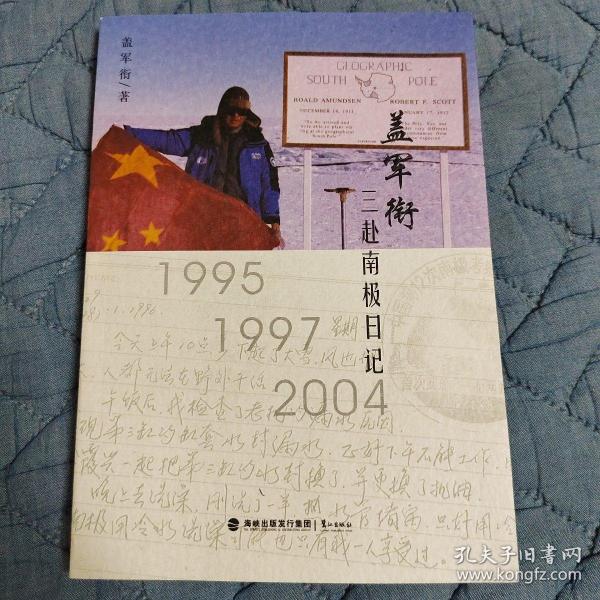 盖军衔/著
GEOGRAPHIC
SOUTH POLE
ROALD AMUNDSEN
ROBERT F. SCOTT
DECEMBER 14, 1911
JANUARY 17, 1912
盖军衔
三赴南极日记
1995
1997
2004
.1.1996
星期
今天上午10点
下起了大雪,风也
都无法在野外干活
午饭后,我检查了
现第三缸的缸套水封漏水
下午不钟工作
一起把第三缸的水封换了,并更换了机油
晚上去洗澡,刚洗了一半
只好用冷
南极用冷水洗澡
也只有我一人享受过。
海峡出版发行集团
鹭江出版社
孔夫子旧书网
www.kongfz.com